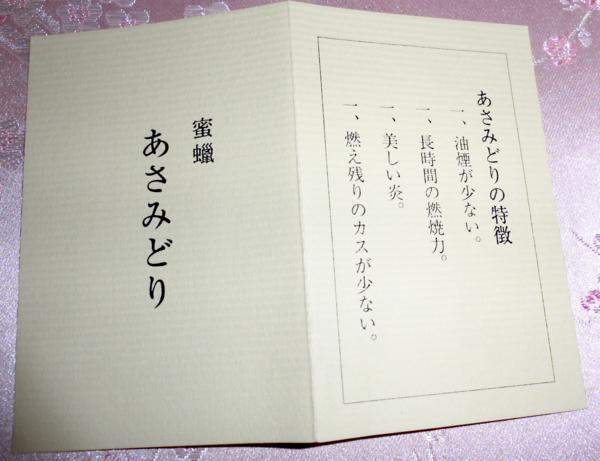 あさみどりの特徴
一、油煙が少ない。
一、長時間の燃焼力。
一、美しい炎。
一、燃え残りのカスが少ない。
蜜蠟
あさみどり